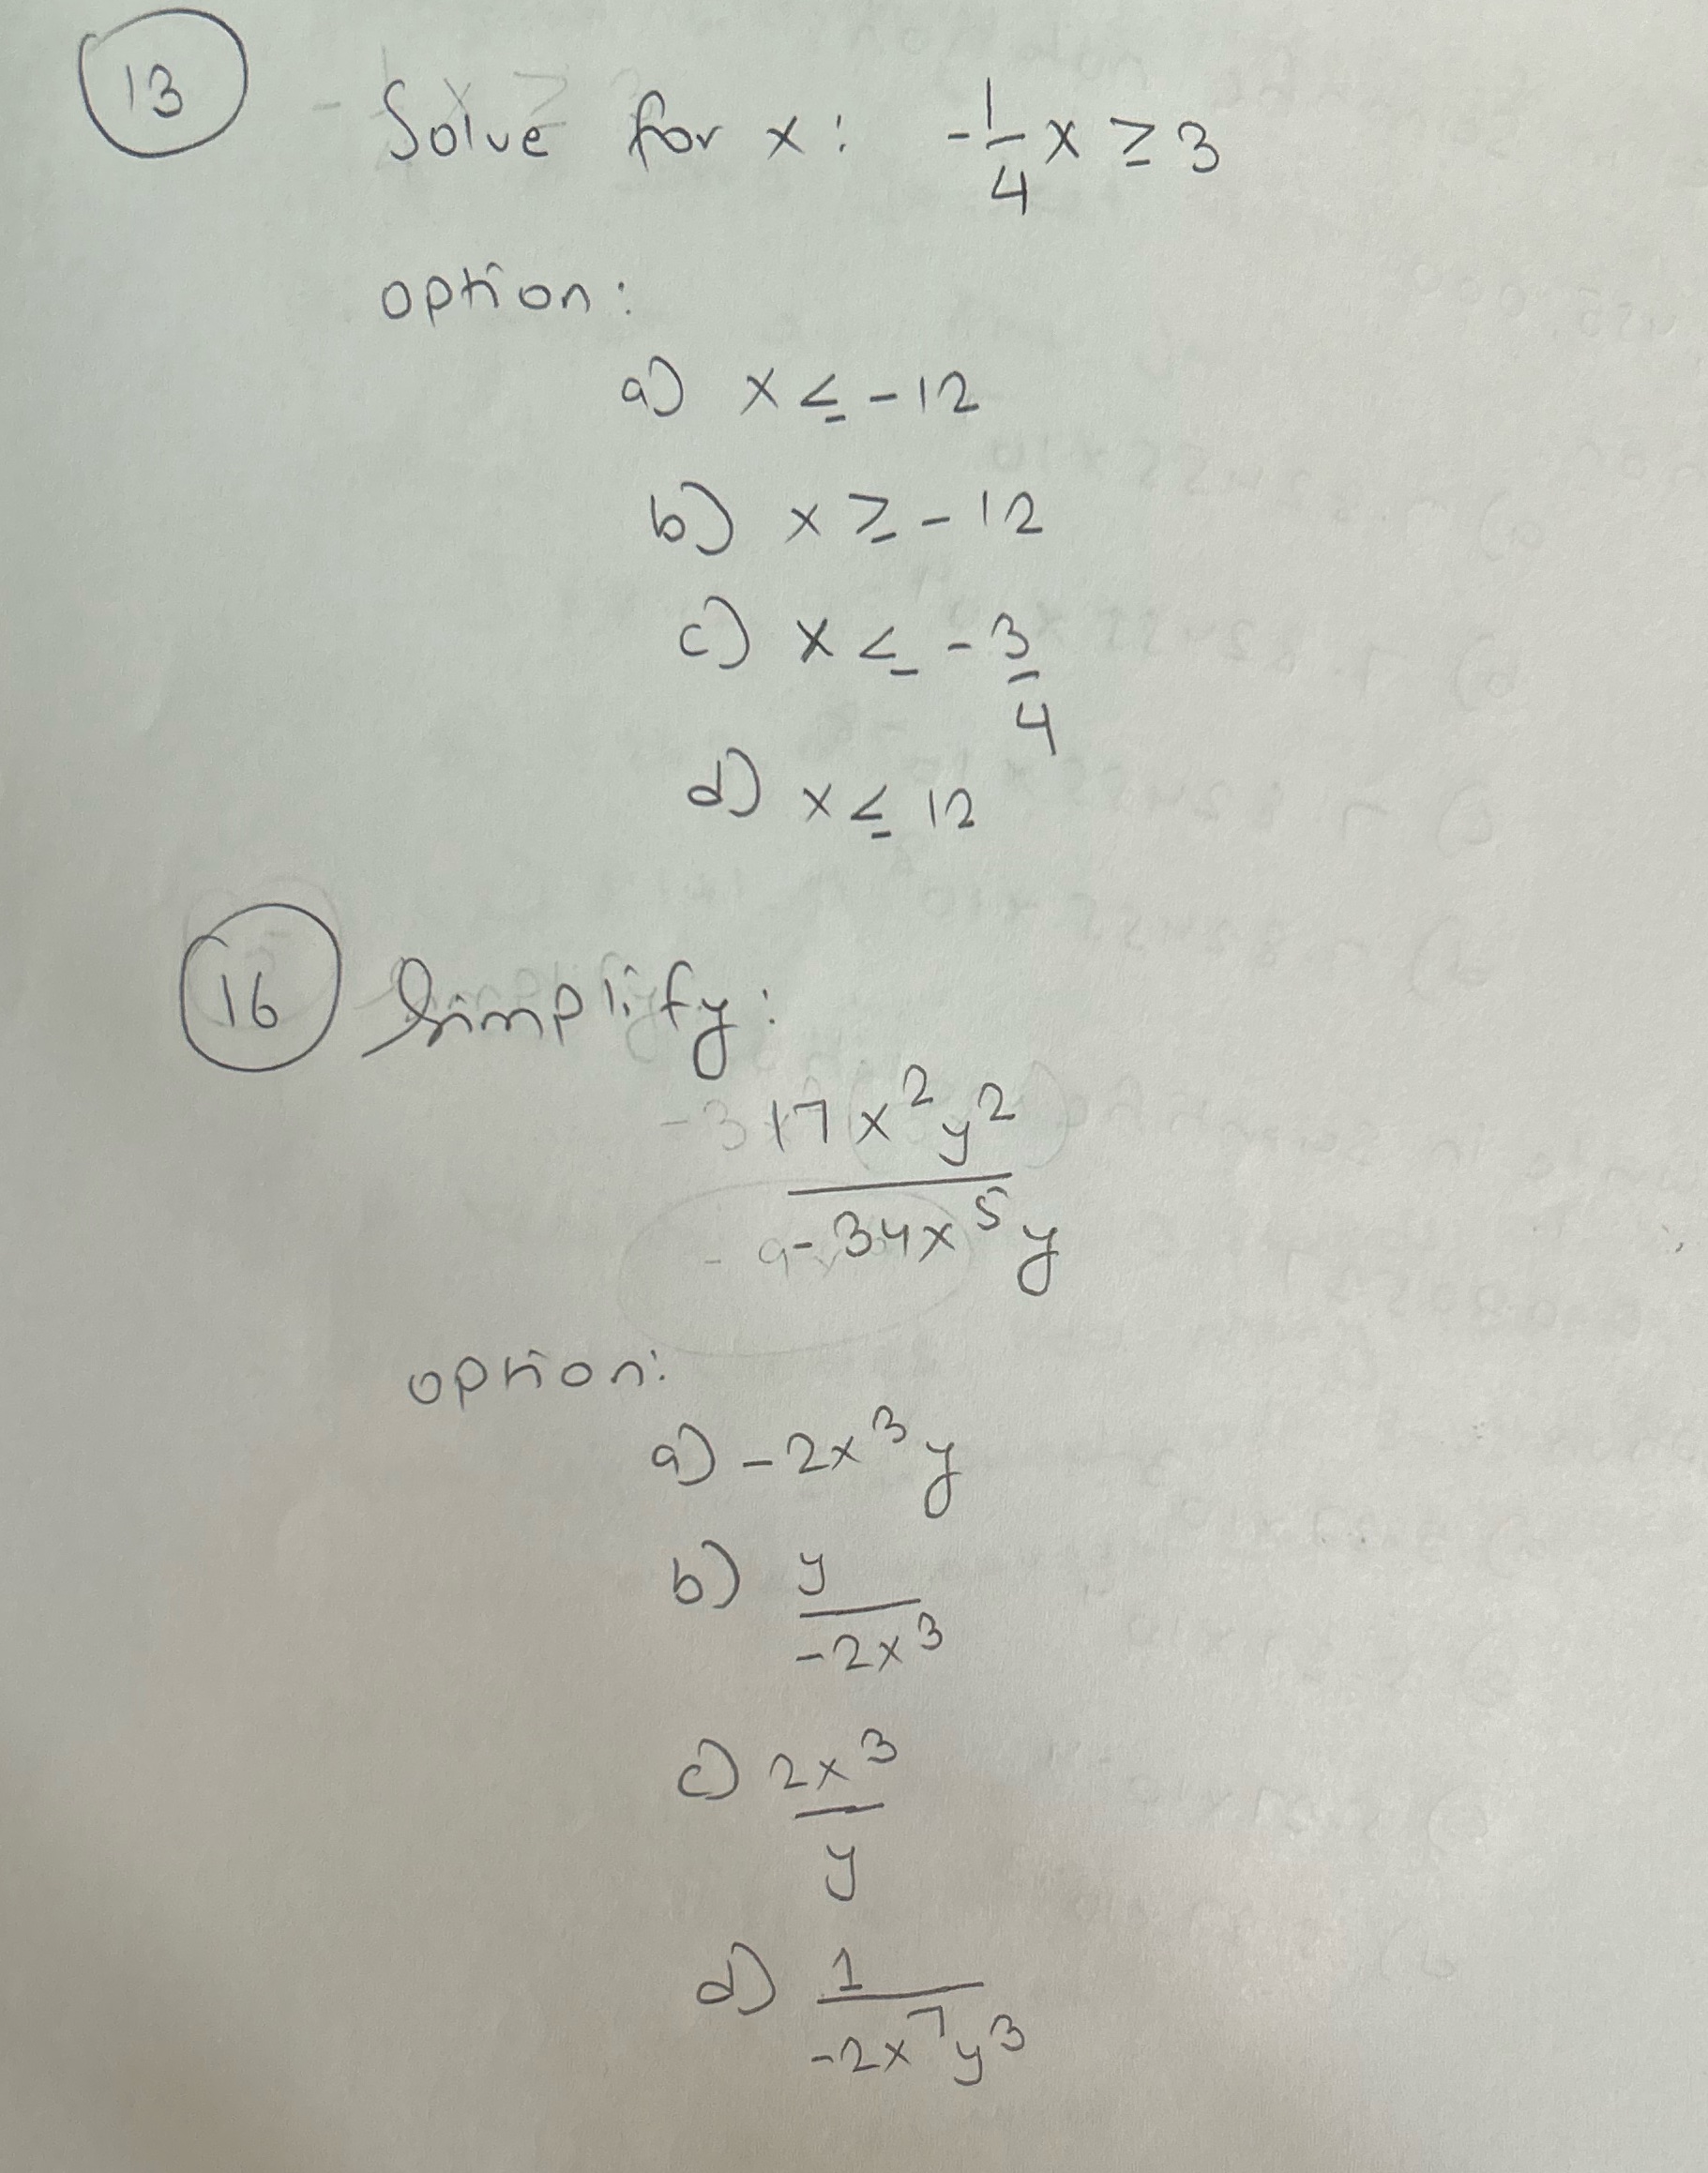 13 Solve for x: -1/4 x ≥ 3
option:
a) x ≤ -12
b) x ≥ -12
c) x ≤ -3/4
d) x ≤ 12
16 Simplify:
17x²y²
-34x⁵y
option:
a) -2x³y
b) y
-2x³
c) 2x³
y
d) 1
-2x⁷y³